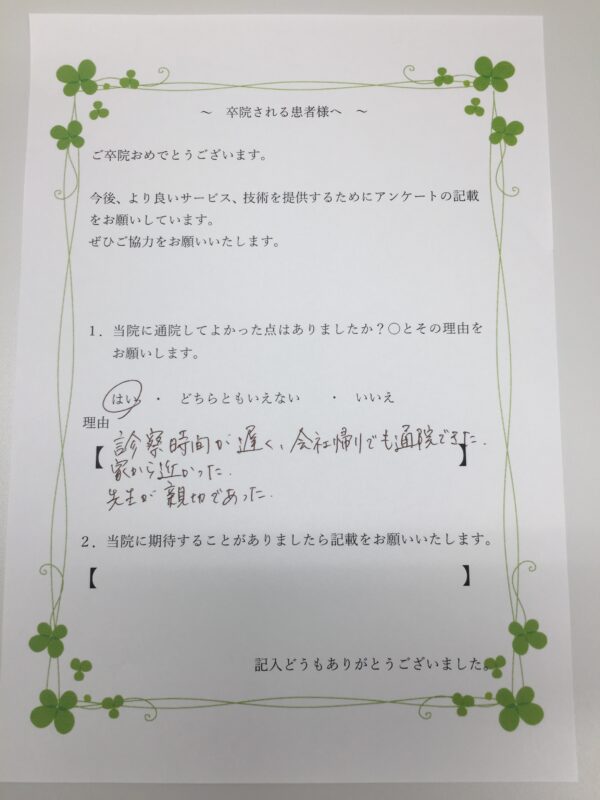 ～　卒院される患者様へ　～
ご卒院おめでとうございます。
今後、より良いサービス、技術を提供するためにアンケートの記載
をお願いしています。
ぜひご協力をお願いいたします。
１．当院に通院してよかった点はありましたか？〇とその理由を
お願いします。
はい　・　どちらともいえない　　・　いいえ
理由
【診察時間が遅く、会社帰りでも通院できた.】
家から近かった.
先生が親切であった.
２．当院に期待することがありましたら記載をお願いいたします。
【　　　】
記入どうもありがとうございました。